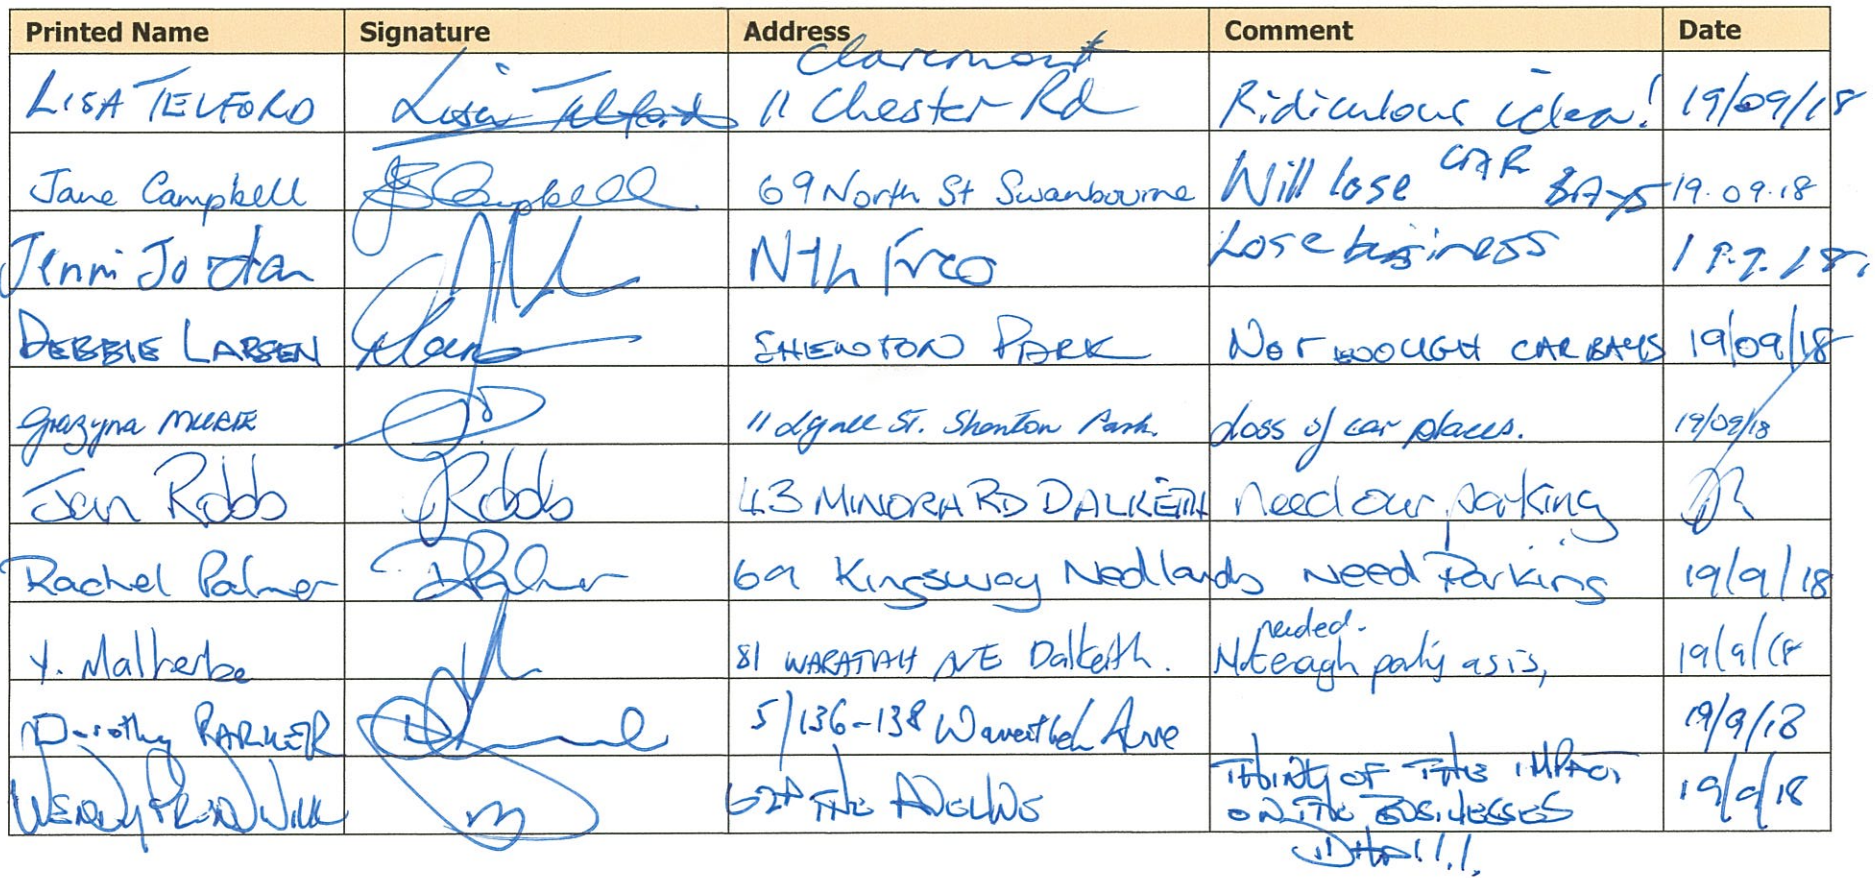 Printed Name Signature Address Comment Date
Claremont
LISA TELFORD Lisa Telford 11 Chester Rd Ridiculous idea! 19/09/18
Jane Campbell JCampbell 69 North St Swanbourne Will lose CAR BAYS 19.09.18
Jenni Jordan Nth Freo Lose business 19.9.18.
DEBBIE LARSEN SHENTON PARK NOT ENOUGH CAR BAYS 19/09/18
Grazyna 11 Lyall ST. Shenton Park. Loss of car places. 19/09/18
Jan Robb JRobb 43 MINORA RD DALKEITH need our parking
Rachel Palmer RPalmer 69 Kingsway Nedlands Need Parking 19/9/18
needed.
Y. Malherbe 81 WARATAH AVE Dalkeith. Not as is, 19/9/18
Dorothy PARKER 5/136-138 Ave 19/9/18
THINK OF THE IMPACT
WENDY THE 19/9/18
ON THE BUSINESSES